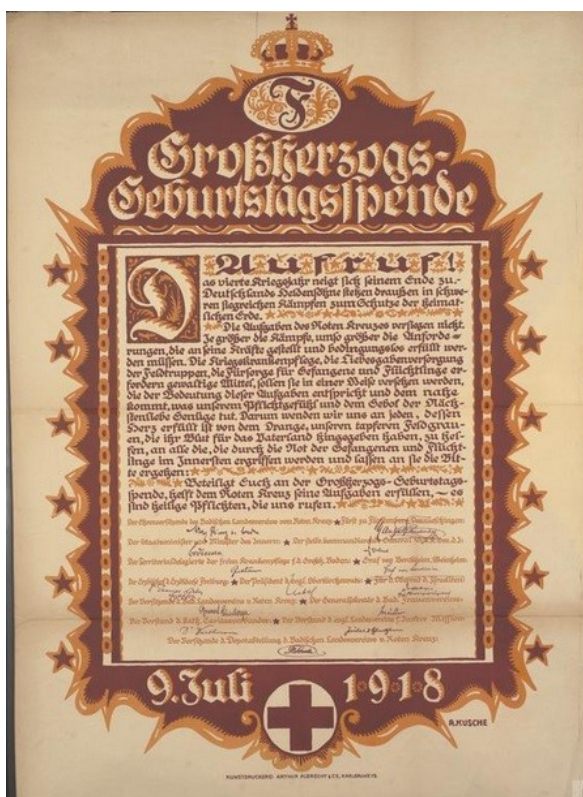 F
Großherzogs-
Geburtstagsspende
Aufruf!
Das vierte Kriegsjahr neigt sich seinem Ende zu.
Deutschlands Heldensöhne stehen draußen in schwe-
ren siegreichen Kämpfen zum Schutze der heimat-
lichen Erde.
Die Aufgaben des Roten Kreuzes versiegen nicht.
Je größer die Kämpfe, umso größer die Anforde-
rungen, die an seine Kräfte gestellt und bedingungslos erfüllt wer-
den müssen. Die Kriegskrankenpflege, die Liebesgabenversorgung
der Feldtruppen, die Fürsorge für Gefangene und Flüchtlinge er-
fordern gewaltige Mittel, sollen sie in einer Weise versehen werden,
die der Bedeutung dieser Aufgaben entspricht und dem nahe
kommt, was unserem Pflichtgefühl und dem Gebot der Näch-
stenliebe Genüge tut. Darum wenden wir uns an jeden, dessen
Herz erfüllt ist von dem Drange, unseren tapferen Feldgrau-
en, die ihr Blut für das Vaterland hingegeben haben, zu hel-
fen, an alle die, die durch die Not der Gefangenen und Flücht-
linge im Innersten ergriffen werden und lassen an sie die Bit-
te ergehen:
Beteiligt Euch an der Großherzogs-Geburtstags-
spende, helft dem Roten Kreuz seine Aufgaben erfüllen, – es
sind heilige Pflichten, die uns rufen.
Der Ehrenvorsitzende des Badischen Landesvereins vom Roten Kreuz: Fürst zu Fürstenberg, Donaueschingen:
Der Staatsminister und Minister des Innern: Der stellv. kommandierende General
Der Territorialdelegierte der freiw. Krankenpflege f. d. Großh. Baden: Graf von Berckheim, Weinheim:
Der Erzbischof d. Erzdiözese Freiburg: Der Präsident d. evgl. Oberkirchenrats: Für d. Oberrat d. Israeliten:
Der Vorsitzende d. Bad. Landesvereins v. Roten Kreuz: Der Generalsekretär d. Bad. Frauenvereins:
Der Vorstand d. Kath. Caritasverbandes: Der Vorstand d. evgl. Landesvereins f. Innere Mission:
Der Vorsitzende d. Depotabteilung d. Badischen Landesvereins v. Roten Kreuz:
9. Juli 1918
A. KUSCHE
KUNSTDRUCKEREI ARTHUR ALBRECHT & CIE, KARLSRUHE I/B